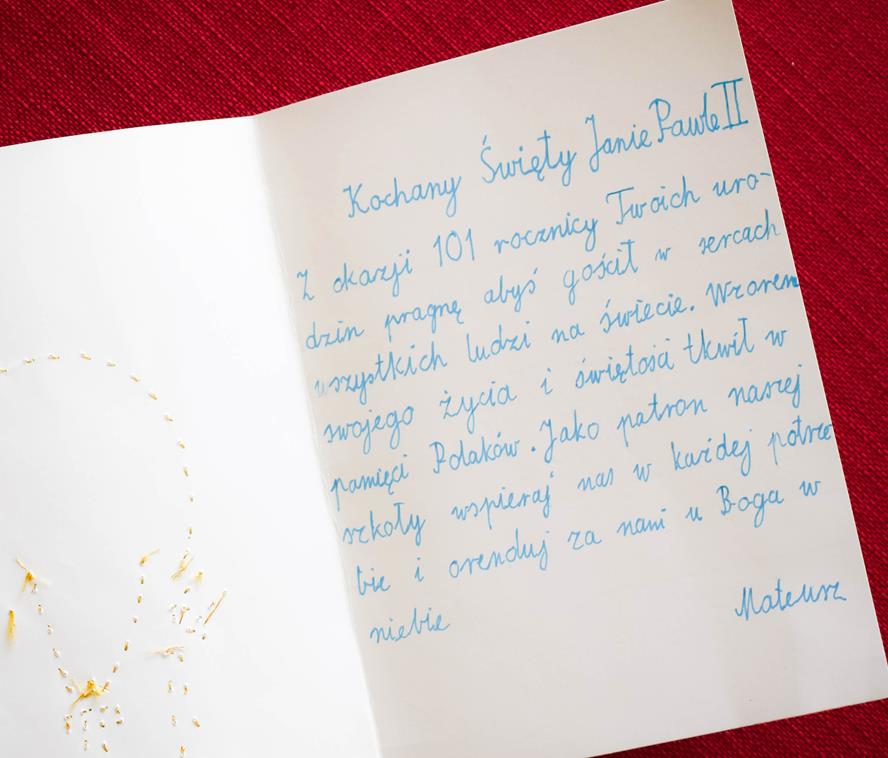 Kochany Święty Janie Pawle II
Z okazji 101 rocznicy Twoich uro-
dzin pragnę abyś gościł w sercach
wszystkich ludzi na świecie. Wzorem
swojego życia i świętości tkwił w
pamięci Polaków. Jako patron naszej
szkoły wspieraj nas w każdej potrze
bie i orenduj za nami u Boga w
niebie
Mateusz